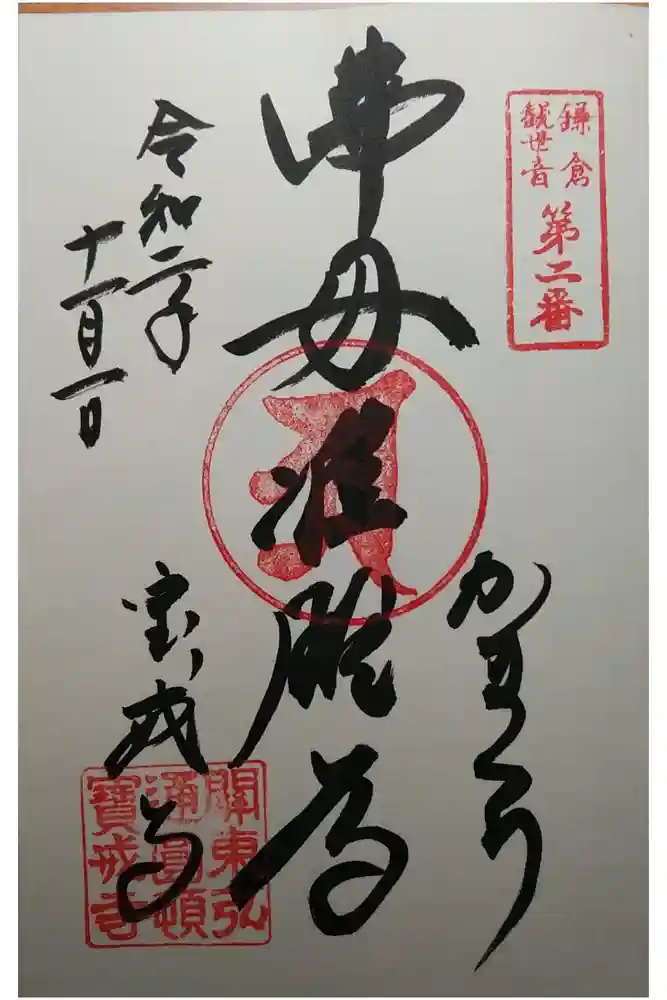 鎌倉
観世音
第二番
かまくら
佛母准胝尊
令和二年
十一月一日
宝戒寺
關東弘
通圓頓
寶戒寺